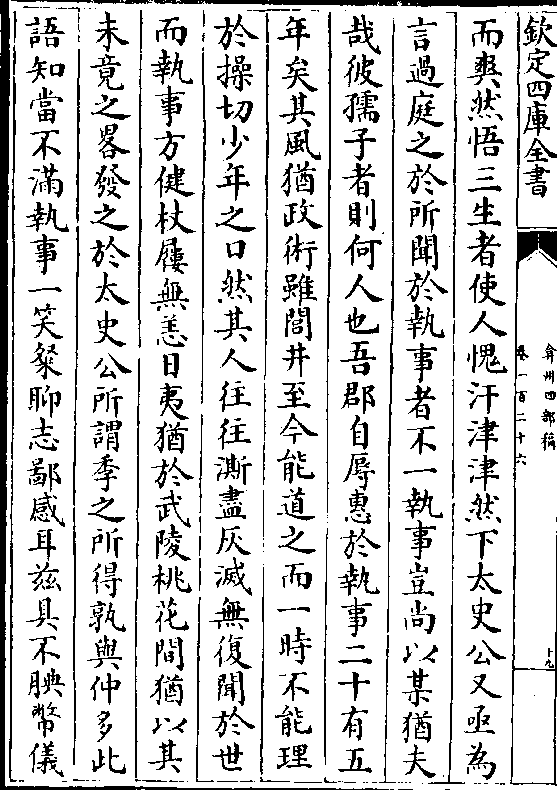 欽定四庫全書
弇州四部稿
卷一百二十六
十九
而爽然悟三生者使人愧汗津津然下太史公又亟為
言過庭之於所聞於執事者不一執事豈尚以某猶夫
哉彼孺子者則何人也吾郡自辱惠於執事二十有五
年矣其風猶政術雖閭井至今能道之而一時不能理
於操切少年之口然其人往往澌盡灰滅無復聞於世
而執事方健杖屨無恙日夷猶於武陵桃花間猶以其
未竟之畧發之於太史公所謂季之所得孰與仲多此
語知當不滿執事一笑粲聊志鄙感耳兹具不腆幣儀